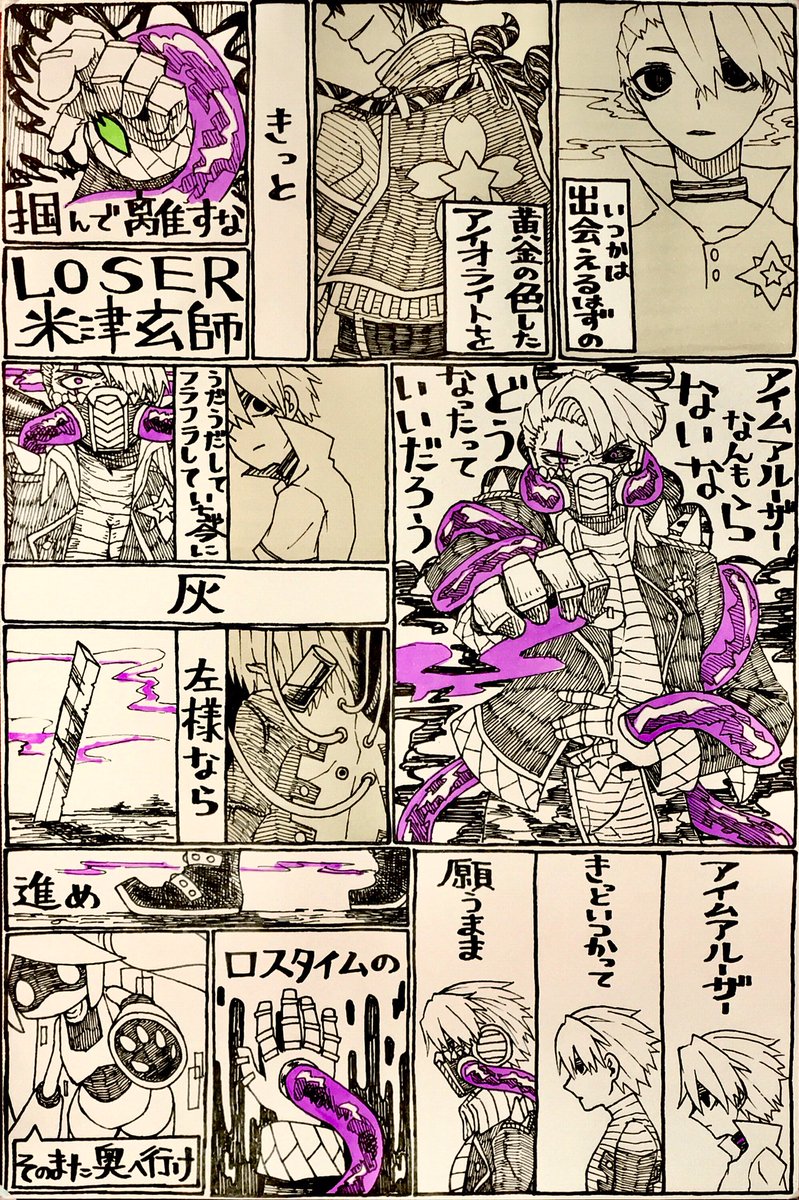 いつかは
出会えるはずの
黄金の色した
アイオライトを
きっと
掴んで離すな
LOSER
米津玄師
アイムアルーザー
なんも
ないなら
どう
なったって
いいだろう
うだうだして
フラフラしていちゃ今に
灰
左様なら
アイムアルーザー
きっといつかって
願うまま
進め
ロスタイムの
そのまた奥へ行け